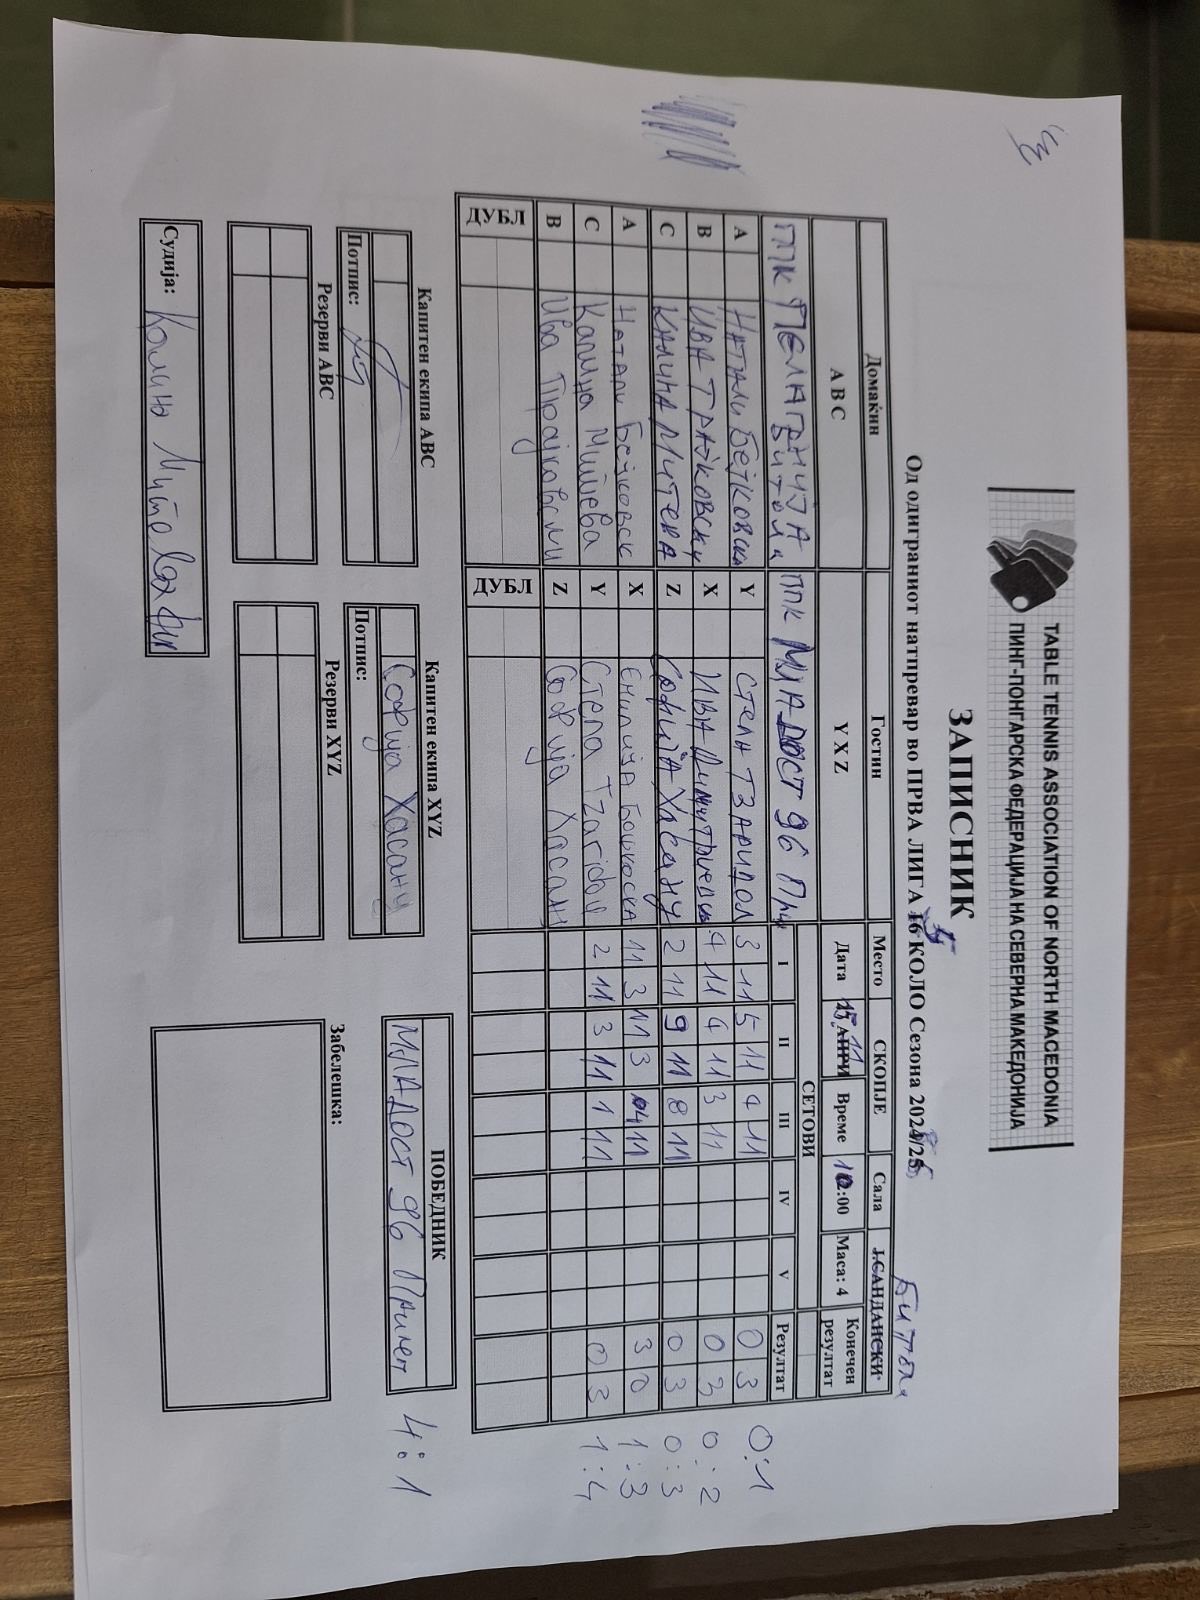 TABLE TENNIS ASSOCIATION OF NORTH MACEDONIA
ПИНГ-ПОНГАРСКА ФЕДЕРАЦИЈА НА СЕВЕРНА МАКЕДОНИЈА
ЗАПИСНИК
Од одиграниот натпревар во ПРВА ЛИГА КОЛО Сезона
Битола
Домаќин Гостин Место СКОПЈЕ Сала Ј.САНДАНСКИ
A B C Y X Z Дата 15 11 Време :00 Маса: 4 Конечен резултат
ППК ПЕЛАГОНИЈА БИТОЛА ППК МЛАДОСТ 96 СЕТОВИ
I II III IV V Резултат
A НАТАЛИ Y СТЕЛА 3 11 5 11 4 11 0 3 0:1
B ИВА ТРАЈКОВСКИ X ИВА 4 11 4 11 3 11 0 3 0:2
C КАЛИНА МИТЕВА Z СОФИЈА ХАСАНУ 2 11 9 11 8 11 0 3 0:3
A Натали X ЕМИЛИЈА БОШКОСКА 11 3 11 3 11 3 0 1:3
C Калина Митева Y Стела 2 11 3 11 1 11 0 3 1:4
B Ива Трајковски Z Софија Хасан
ДУБЛ ДУБЛ
Капитен екипа ABC Капитен екипа XYZ ПОБЕДНИК
Софија Хасану МЛАДОСТ 96 Прилеп 4:1
Потпис: Потпис:
Резерви ABC Резерви XYZ Забелешка:
Судија: